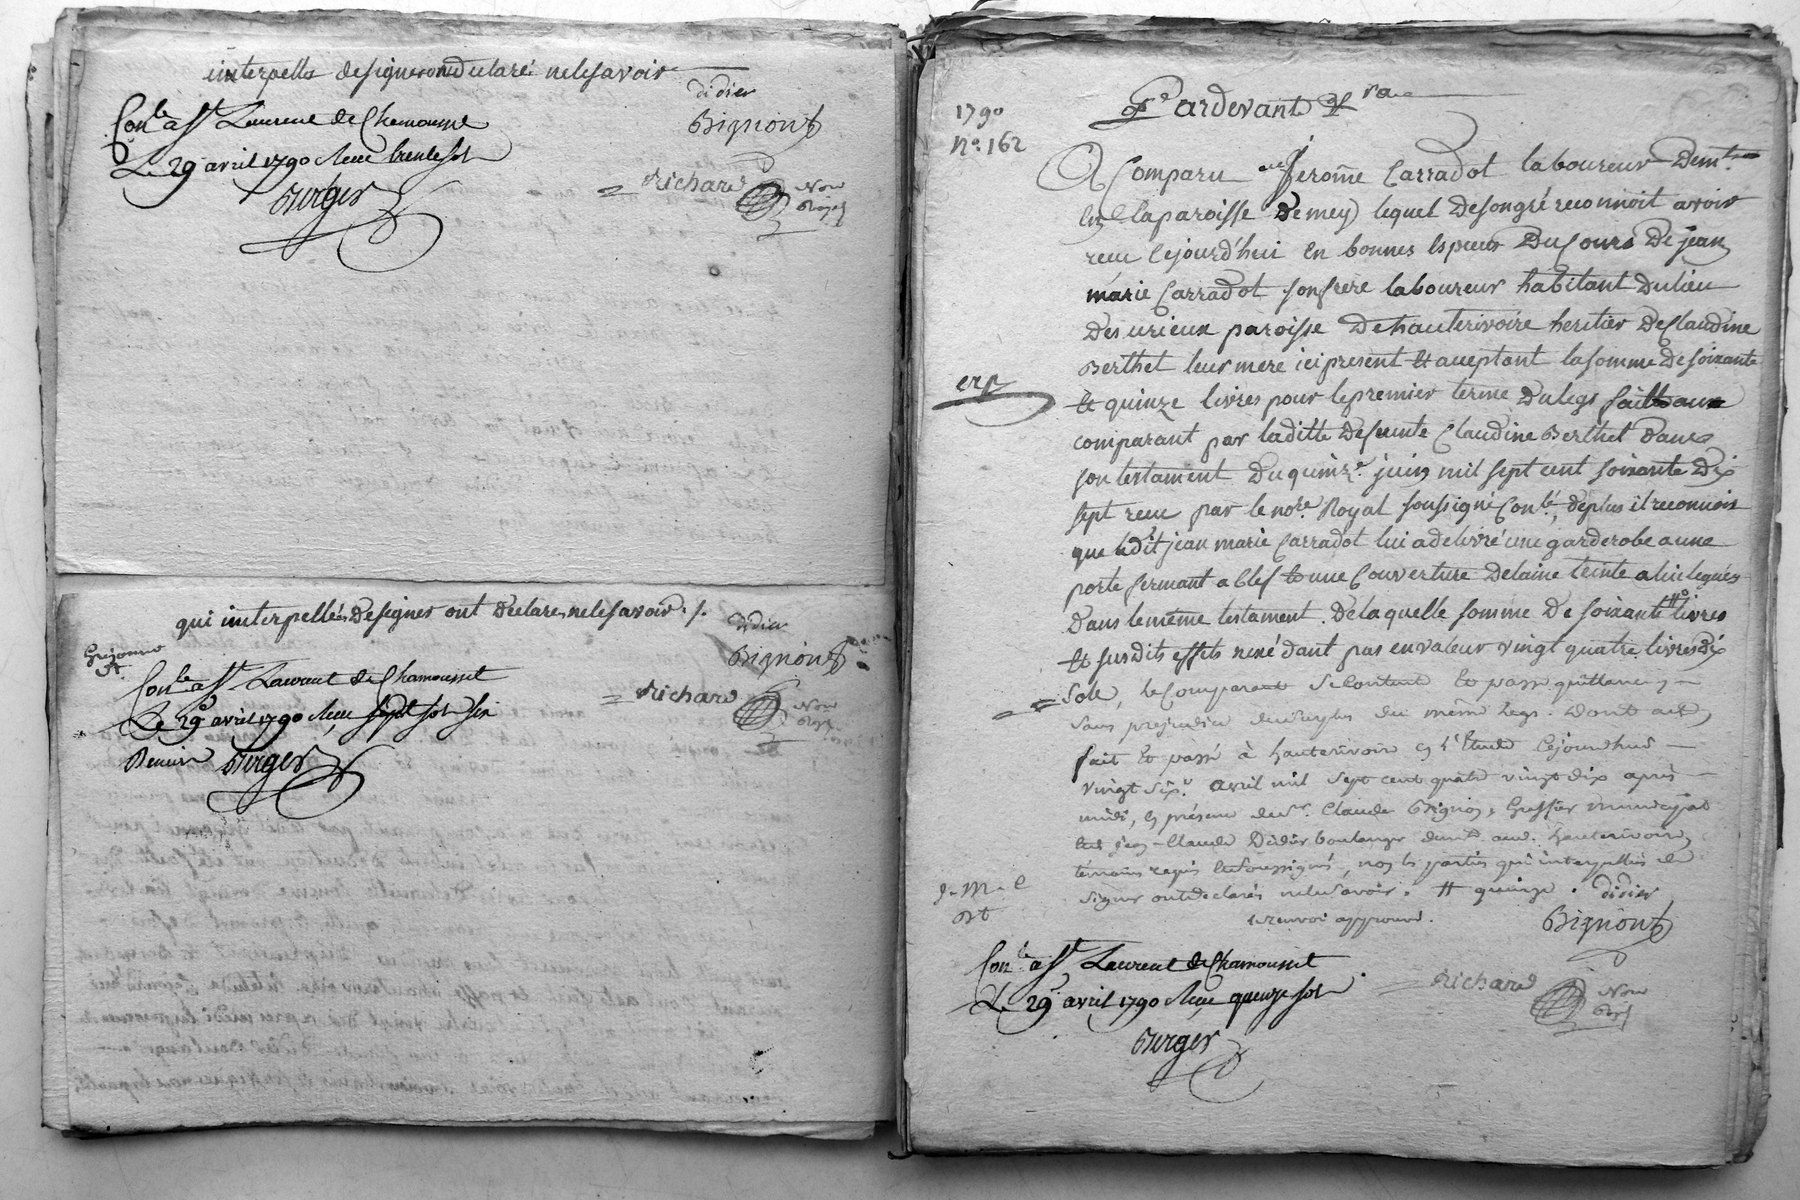 interpellé de signer ont declaré ne le savoir
didier
Bignon
Conle a St Laurent de Chamousset
Le 29 avril 1790 Reçu trente sols
Berger
= Richard
Nore
Royal
qui interpellées de signer ont declarés ne le savoir ./.
didier
Bignon
Conle a St Laurent de Chamousset
Le 29 avril 1790 Reçu sept sols six
Deniers Berger
= Richard
Nore
Royal
1790
No. 162
Pardevant
A Comparu Jerome Carradot laboureur Demt
en la paroisse de mey lequel de son gré reconnoit avoir
recu cejourd'hui en bonnes especes du cours De jean
marie Carradot son frere laboureur habitant du lieu
des urieux paroisse De hauterivoire heritier De Claudine
Berthet leur mere ici present et acceptant la somme de soixante
et quinze livres pour le premier terme du legs fait au
exp
comparant par laditte defunte Claudine Berthet dans
son testament du quinze juin mil sept cent soixante Dix
sept recu par le nore Royal soussigné Conlé, de plus il reconnoit
que ledit jean marie Carradot lui a delivré une garderobe a une
porte fermant a Clef et une Couverture de laine teinte a lui legués
dans le même testament. De laquelle somme de soixante # livres
et susdits effets n'excédant pas en valeur vingt quatre livres dix
Sols, le Comparant se contente et passe quittance
sans prejudice du surplus du même legs. Dont acte
fait et passé à hauterivoire en l'Etude Cejourdhui
vingt six avril mil sept cent quatre vingt dix après
midi, en présence de sr. Claude Bignon, Greffier municipal
et de jean-Claude Didier boulanger demt aud. hauterivoire
témoins requis et soussignés, non les parties qui interpellées de
signer ont declarés ne le savoir. # quinze.
renvoi approuvé.
didier
Bignon
J. M. C
Conle a St Laurent de Chamousset
Le 29 avril 1790 Reçu quinze sols
Berger
= Richard
Nore
Royal